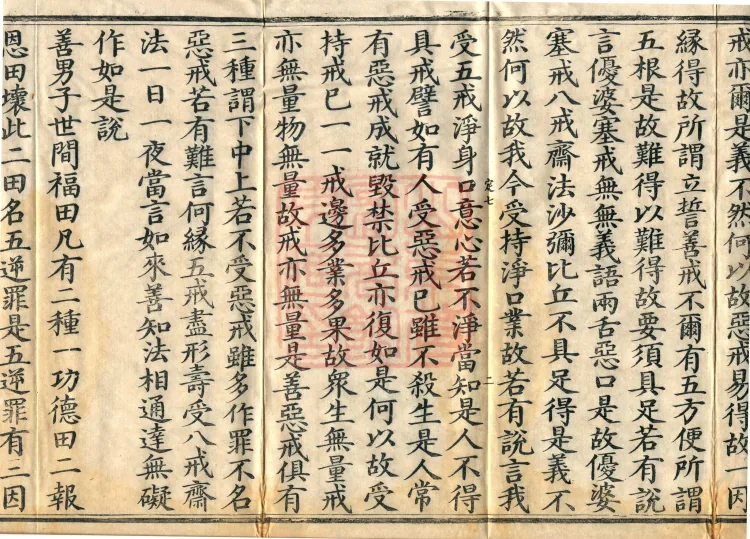 戒亦爾是義不然何以故惡戒易得故一因
縁得故所謂立誓善戒不爾有五方便所謂
五根是故難得以難得故要須具足若有說
言優婆塞戒無無義語兩舌惡口是故優婆
塞戒八戒齋法沙彌比丘不具足得是義不
然何以故我今受持淨口業故若有說言我
受五戒淨身口意心若不淨當知是人不得
定七
二
具戒譬如有人受惡戒已雖不殺生是人常
有惡戒成就毀禁比丘亦復如是何以故受
持戒已一一戒邊多業多果故衆生無量戒
亦無量物無量故戒亦無量是善惡戒俱有
三種謂下中上若不受惡戒雖多作罪不名
惡戒若有難言何縁五戒盡形壽受八戒齋
法一日一夜當言如來善知法相通達無礙
作如是說
善男子世間福田凡有二種一功德田二報
恩田壞此二田名五逆罪是五逆罪有三因